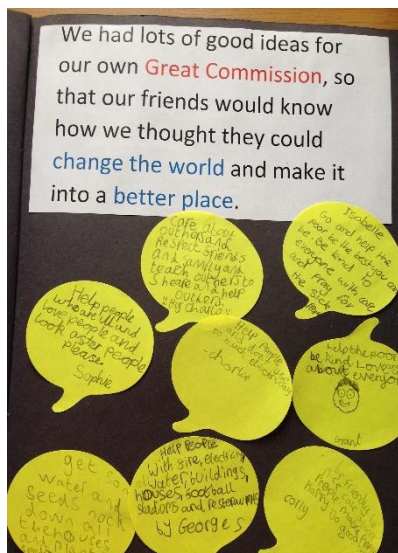 We had lots of good ideas for
our own Great Commission, so
that our friends would know
how we thought they could
change the world and make it
into a better place.
Care about
and
Respect friends
and family and
teach outhers to
sheare and help
outhers.
by
Isabelle
Go and help the
poor be the best you can
be be kind to
everyone with care
and pray for
the sick
Help people
who are ill and
love people and
look after people
please
Sophie
Help People
-charlie
help the Poor
be kind Love
about everyone
Grant
get
water and
seeds nock
down all
the houses
and
Help People
With fire, electricity
water, buildings,
houses, football
stadiums and
by George S
be friendly to
People
make
happy
carry